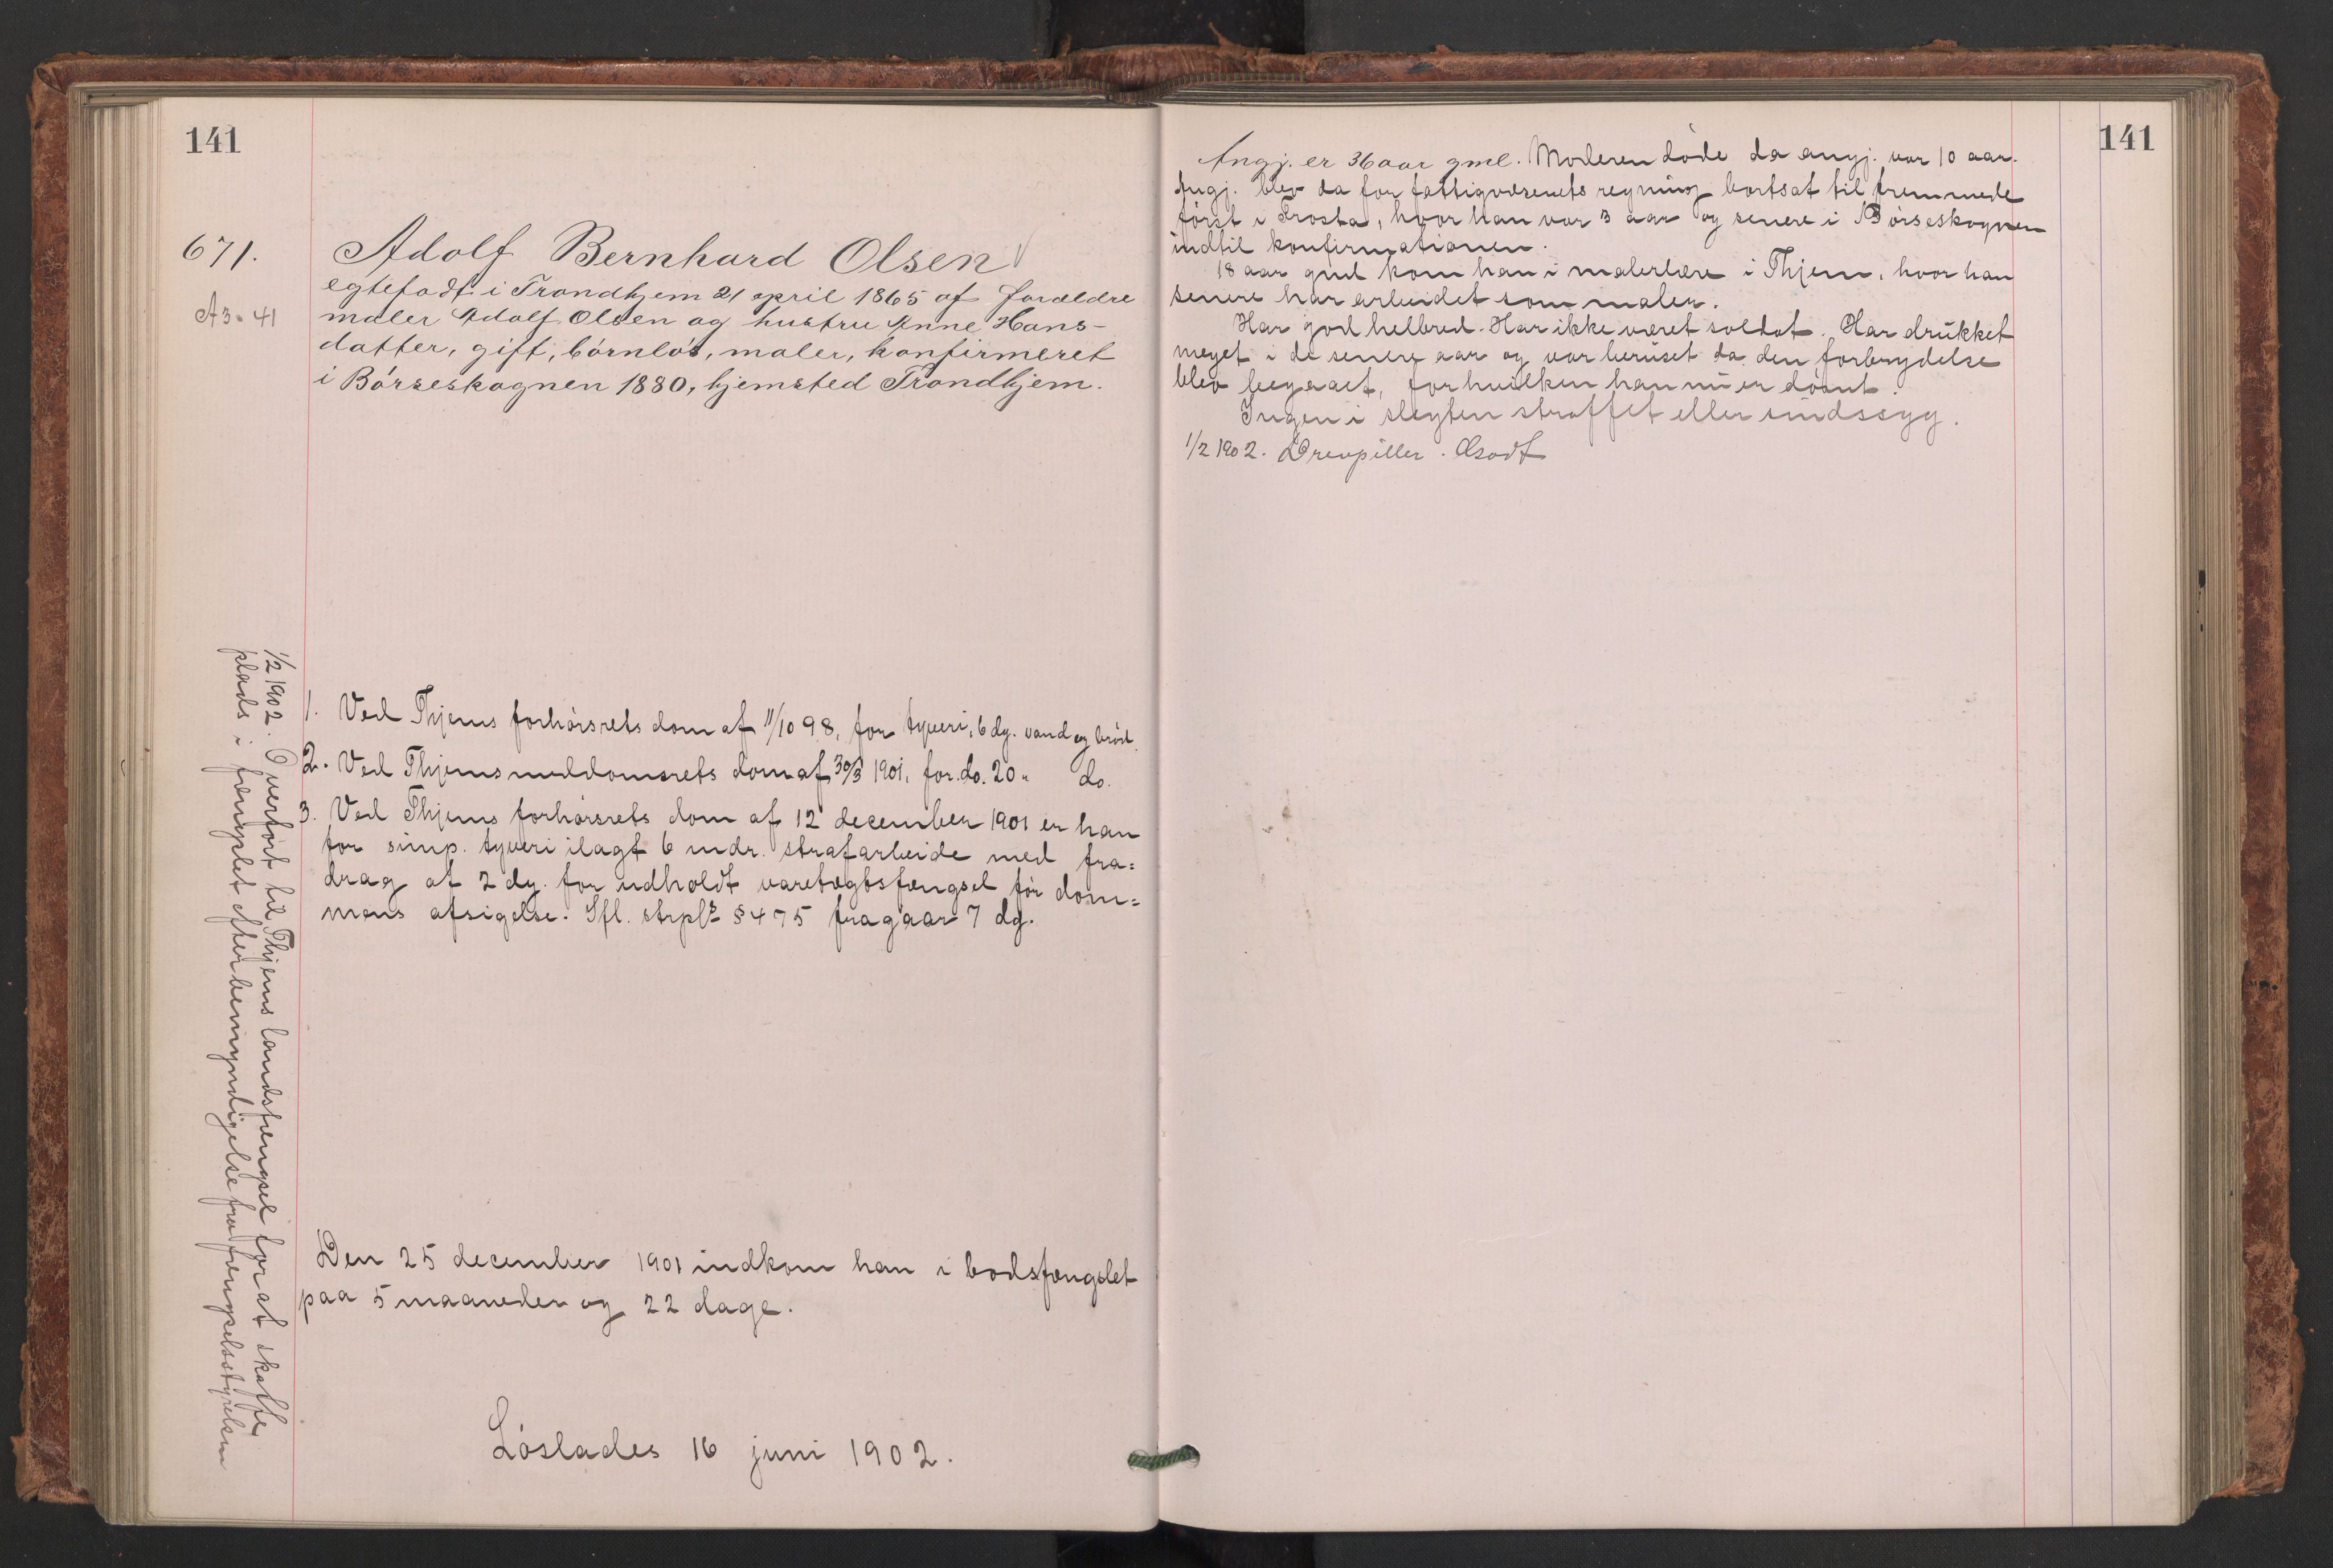 141
671.
A3. 41
Adolf Bernhard Olsen
egtefødt i Trondhjem 21 april 1865 af forældre
maler Adolf Olsen og hustru Anne Hans-
datter, gift, børnløs, maler, konfirmeret
i Børseskognen 1880, hjemsted Trondhjem.
1. Ved Thjems forhørsrets dom af 11/10 98, for tyveri, 6 dg. vand og brød.
2. Ved Thjems meddomsrets dom af 30/3 1901, for do. 20 " do.
3. Ved Thjems forhørsrets dom af 12 december 1901 er han
for simp. tyveri ilagt 6 mdr. strafarbeide med fra=
drag af 2 dg. for udholdt varetægtsfængsel før dom=
mens afsigelse. Ifl. strpl. § 475 fragaar 7 dg.
Den 25 december 1901 indkom han i bodsfængslet
paa 5 maaneder og 22 dage.
Løslades 16 juni 1902.
1/2 1902. Overført til Thjems landsfængsel for at skaffe
plads i fængslet efter bemyndigelse fra fængselsstyrelsen
141
Angj. er 36 aar gml. Moderen døde da angj. var 10 aar.
Angj. blev da for fattigvæsenets regning bortsat til fremmede
først i Frosta, hvor han var 3 aar og senere i Børseskognen
indtil konfirmationen.
18 aar gml kom han i malerlære i Thjem, hvor han
senere har arbeidet som maler.
Har god helbred. Har ikke været soldat. Har drukket
meget i de senere aar og var beruset da den forbrydelse
blev begaaet, for hvilken han nu er dømt.
Ingen i slegten straffet eller sindssyg.
1/2 1902. Drevpiller. Godt